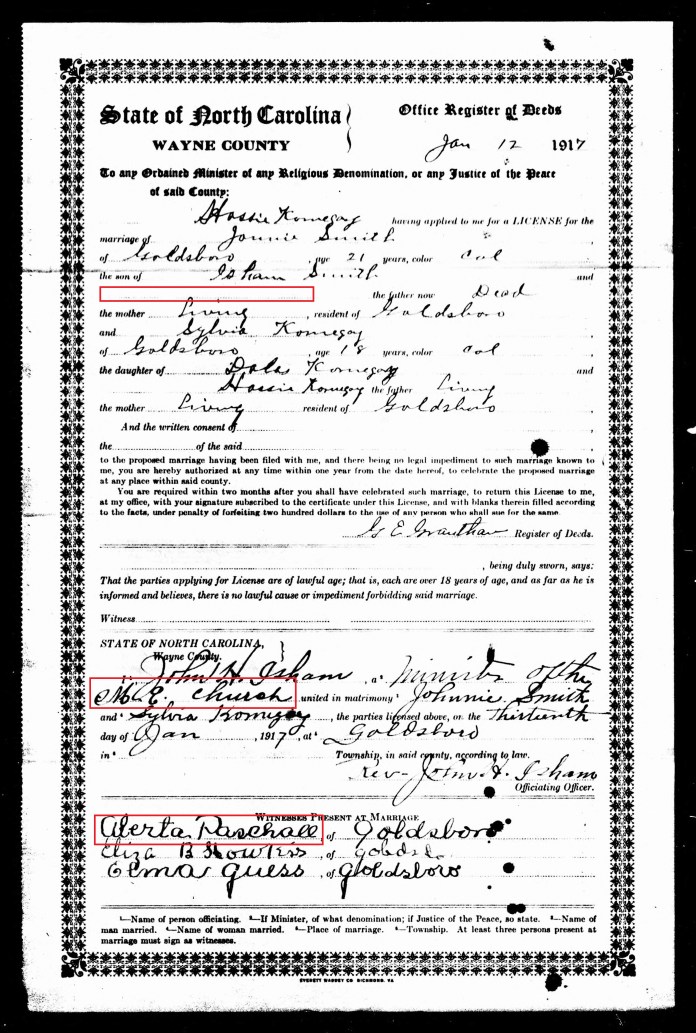 State of North Carolina
WAYNE COUNTY
Office Register of Deeds
Jan 12 1917
To any Ordained Minister of any Religious Denomination, or any Justice of the Peace
of said County:
Hassie Kornegay having applied to me for a LICENSE for the
marriage of Jonnie Smith ,
of Goldsboro , age 21 years, color Col ,
the son of Isham Smith and
the father now Dead ,
the mother Living , resident of Goldsboro
and Sylvia Kornegay
of Goldsboro , age 18 years, color Col ,
the daughter of Dolas Kornegay and
Hassie Kornegay the father Living ,
the mother Living resident of Goldsboro ,
And the written consent of ,
the of the said ,
to the proposed marriage having been filed with me, and there being no legal impediment to such marriage known to
me, you are hereby authorized at any time within one year from the date hereof, to celebrate the proposed marriage
at any place within said county.
You are required within two months after you shall have celebrated such marriage, to return this License to me,
at my office, with your signature subscribed to the certificate under this License, and with blanks therein filled according
to the facts, under penalty of forfeiting two hundred dollars to the use of any person who shall sue for the same.
G E Grantham Register of Deeds.
, being duly sworn, says:
That the parties applying for License are of lawful age; that is, each are over 18 years of age, and as far as he is
informed and believes, there is no lawful cause or impediment forbidding said marriage.
Witness
STATE OF NORTH CAROLINA,
Wayne County.
I, John H. Isham , a Minister of the
M. E. Church united in matrimony Johnnie Smith
and Sylvia Kornegay , the parties licensed above, on the Thirteenth
day of Jan , 1917, at Goldsboro
in Township, in said county, according to law.
Rev- John H. Isham
Officiating Officer.
WITNESSES PRESENT AT MARRIAGE
Alerta Paschall of Goldsboro
Eliza B , of
Elma Guess , of Goldsboro
¹—Name of person officiating. ²—If Minister, of what denomination; if Justice of the Peace, so state. ³—Name of
man married. ⁴—Name of woman married. ⁵—Place of marriage. ⁶—Township. At least three persons present at
marriage must sign as witnesses.
EVERETT WADDEY CO RICHMOND, VA